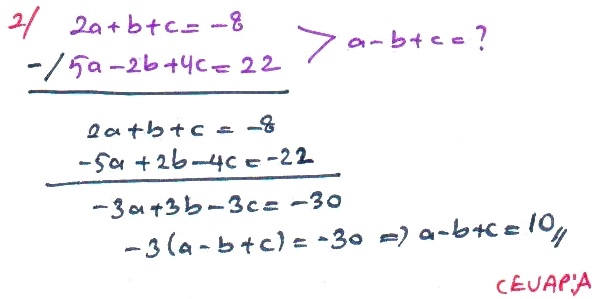 2/ 2a+b+c=-8
-/5a-2b+4c=22 > a-b+c=?
2a+b+c=-8
-5a+2b-4c=-22
-3a+3b-3c=-30
-3(a-b+c)=-30 => a-b+c=10//
CEVAP:A